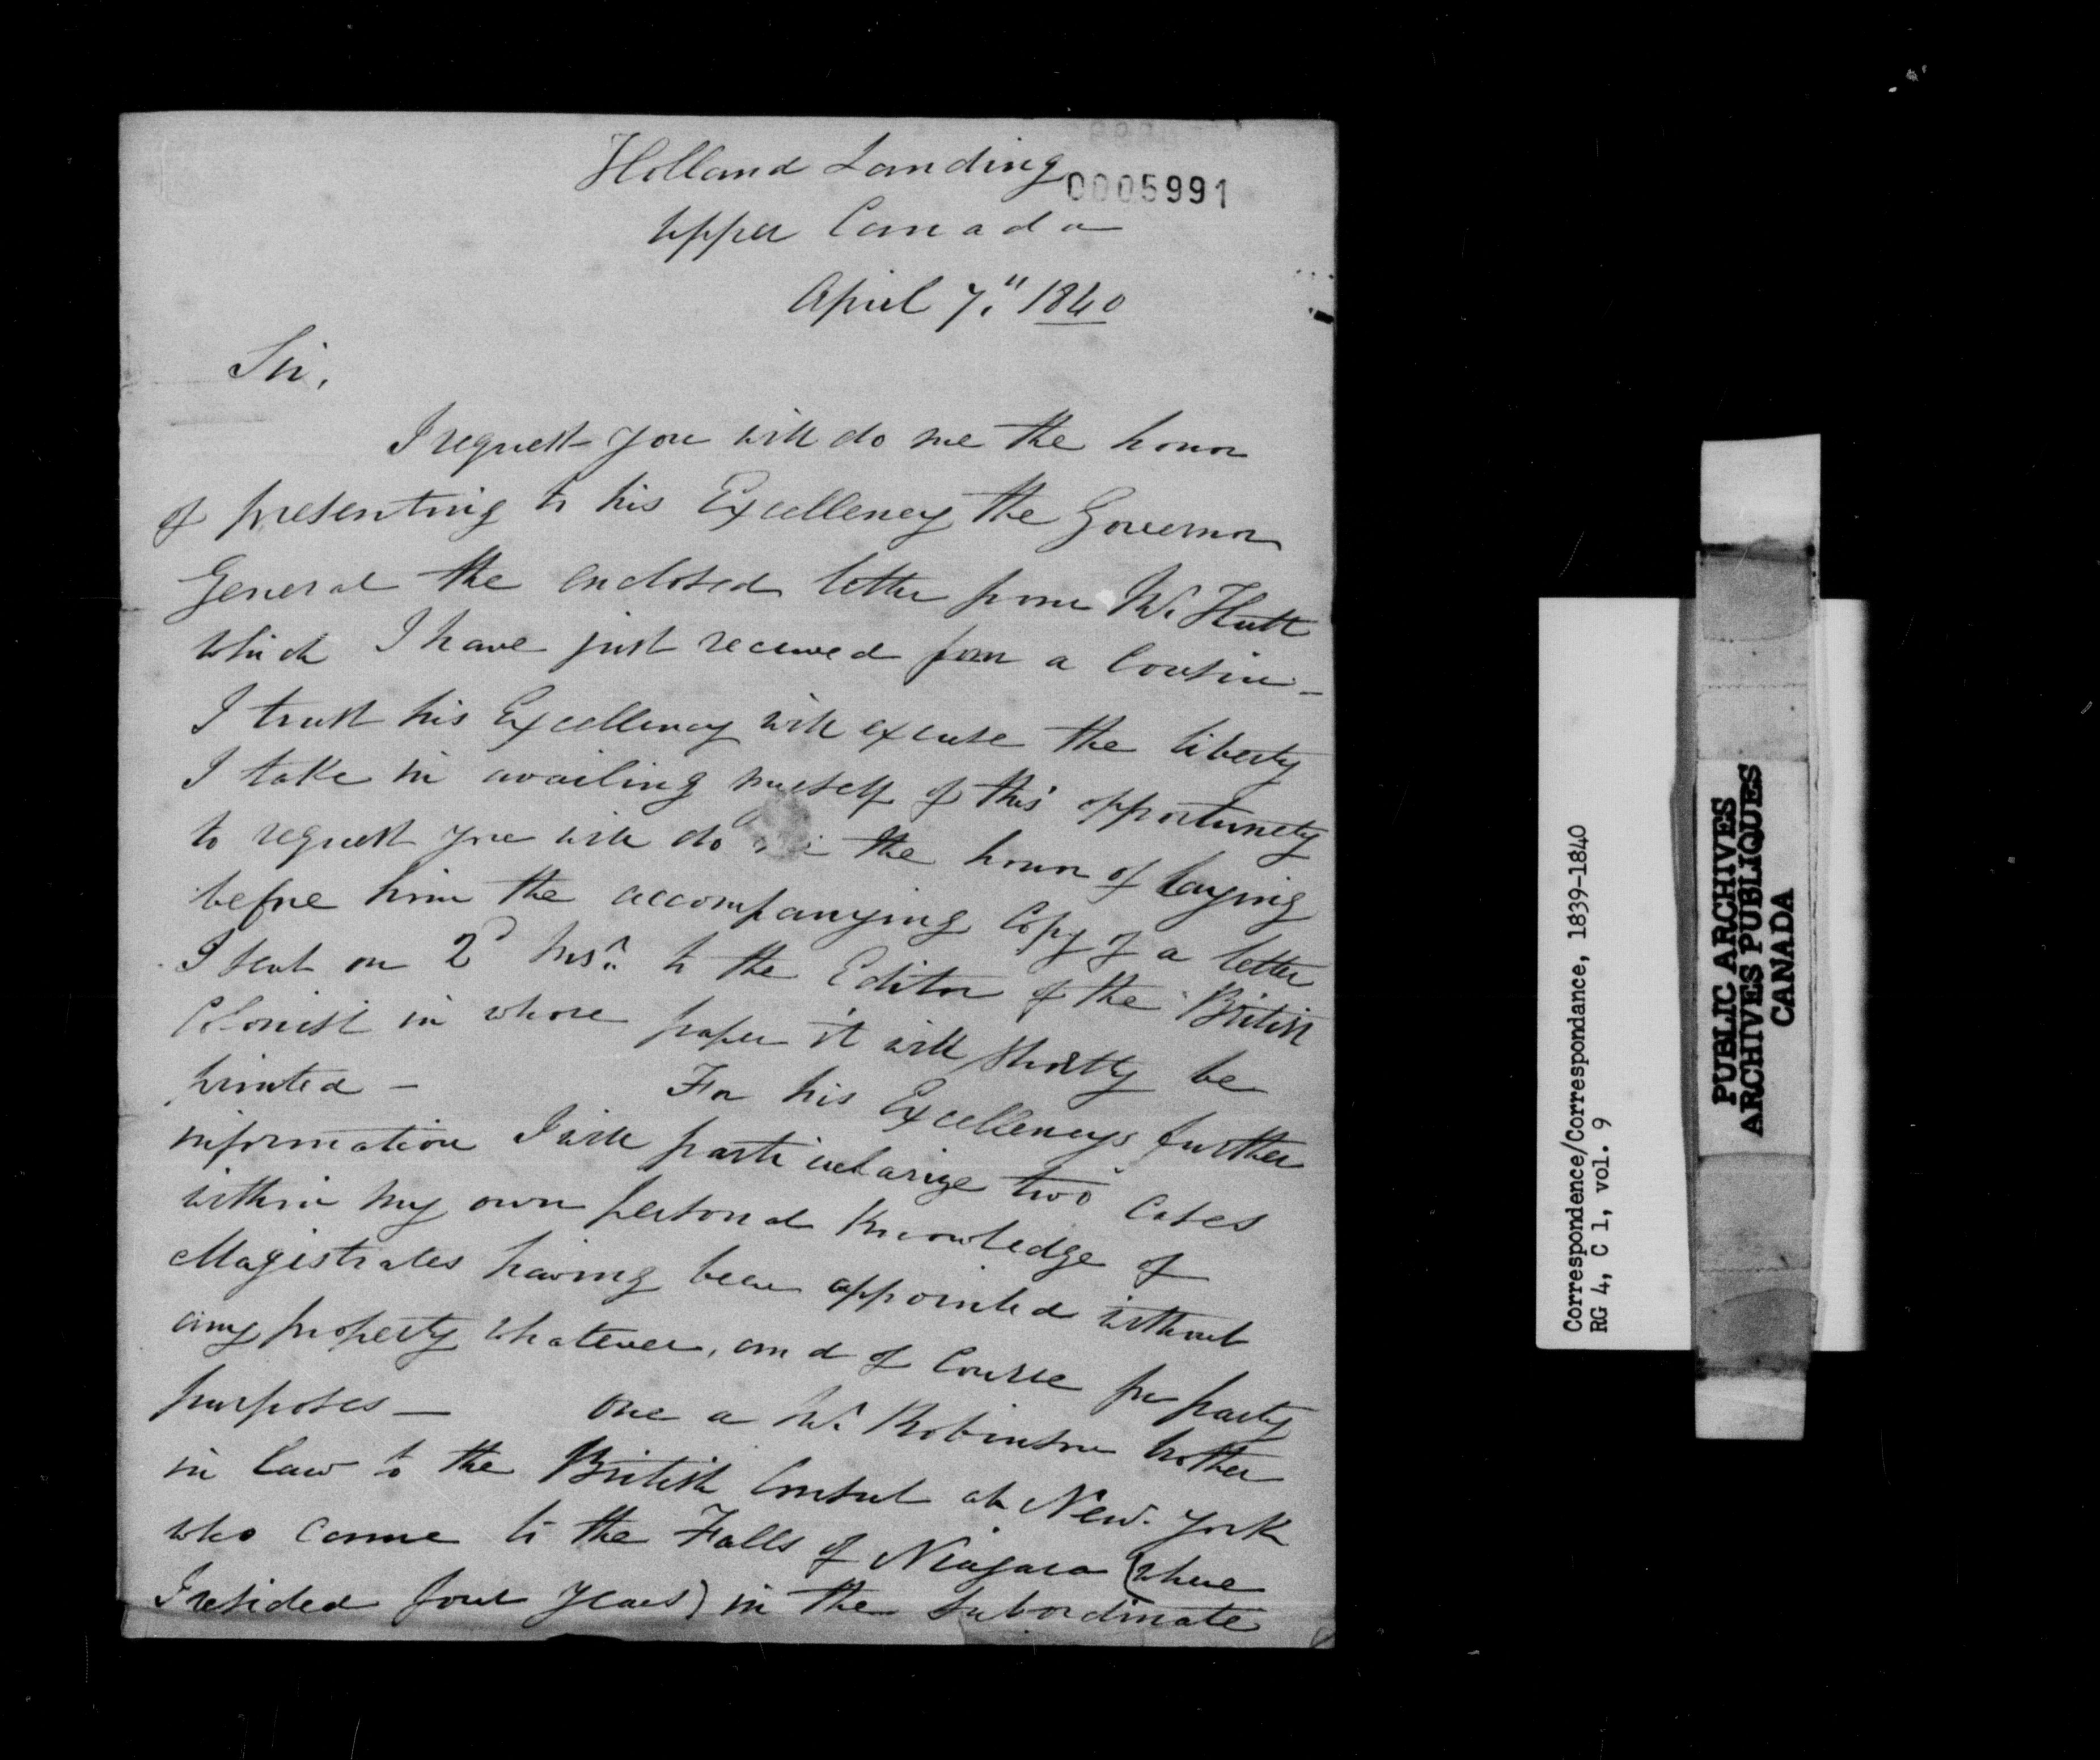 Holland Landing
0005991
Upper Canada
April 7." 1840
Sir,
I request you will do me the honor
of presenting to his Excellency the Governor
General the enclosed letter from Mr. Hutt
which I have just received from a Cousin -
I trust his Excellency will excuse the liberty
I take in availing myself of this opportunity
to request you will do the honor of laying
before him the accompanying Copy of a letter
I sent on 2d to the Editor of the British
Colonist in whose paper it will shortly be
printed - For his Excellencys further
information I will particularize two Cases
within my own personal Knowledge of
Magistrates having been appointed without
any property whatever, and of Course for party
purposes - One a Mr. Robinson brother
in law to the British Consul at New-York
who came to the Falls of Niagara (where
I resided four years) in the subordinate
Correspondence/Correspondance, 1839-1840
RG 4, C 1, vol. 9
PUBLIC ARCHIVES
ARCHIVES PUBLIQUES
CANADA